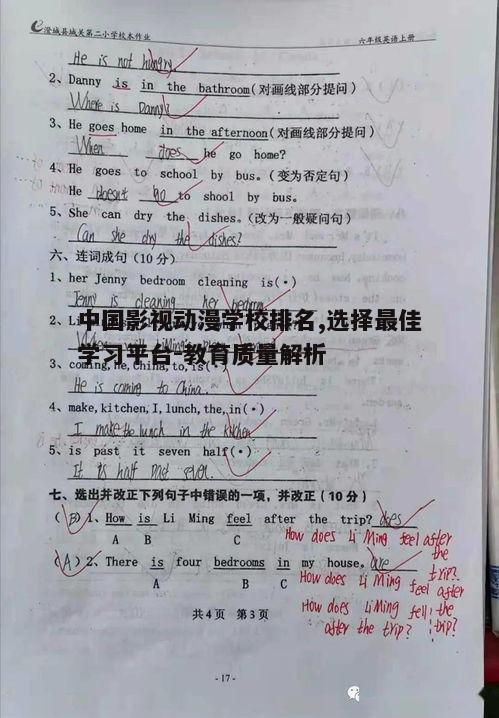 澄城县城关第二小学校本作业 六年级英语上册
He is not hungry
2、Danny is in the bathroom(对画线部分提问)
Where is Danny?
3、He goes home in the afternoon(对画线部分提问)
When does he go home?
4、He goes to school by bus。(变为否定句)
He doesn't go to shool by bus.
5、She can dry the dishes。(改为一般疑问句)
Can she dry the dishes?
六、连词成句(10分)
1、her Jenny bedroom cleaning is(•)
Jenny is cleaning her bedroom
中国影视动漫学校排名,选择最佳
学习平台-教育质量解析
2、Li
3、coming,He,China,to,is(
He is coming to China.
4、make,kitchen,I,lunch,the,in(•)
I make the lunch in the kitchen
5、is past it seven half(•)
It is half past seven.
七、选出并改正下列句子中错误的一项，并改正(10分)
(B)1、How is Li Ming feel after the trip? does
A B C
How does Li Ming feel after the trip?
(A)2、There is four bedrooms in my house. are
A B C
How does Li Ming feel after the trip?
How does Li Ming fell after the trip?
共4页 第3页
- 17 -